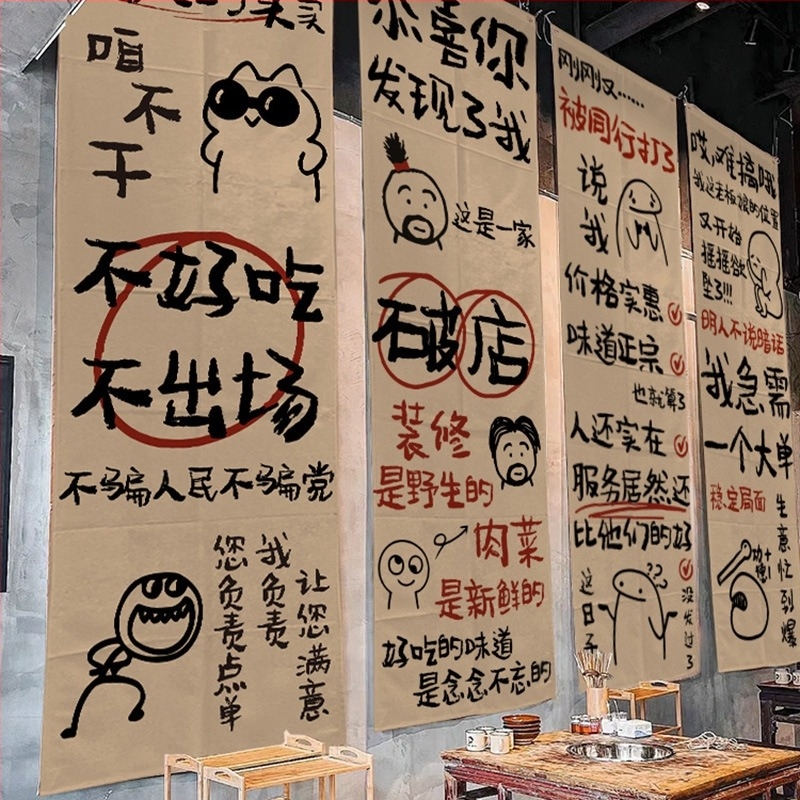 的买卖
咱
不
干
不好吃
不出场
不骗人民不骗党
您负责点单
我负责
让您满意
恭喜你
发现了我
这是一家
破店
装修
是野生的
肉菜
是新鲜的
好吃的味道
是念念不忘的
刚刚又……
被同行打了
说
我
价格实惠
味道正宗
也就算了
人还实在
服务居然还
比他们的好
这日子
??
没发过了
哎,难搞哦
我这老板娘的位置
又开始
摇摇欲
坠了!!!
明人不说暗话
我急需
一个大单
稳定局面
生意忙到爆
功德+1